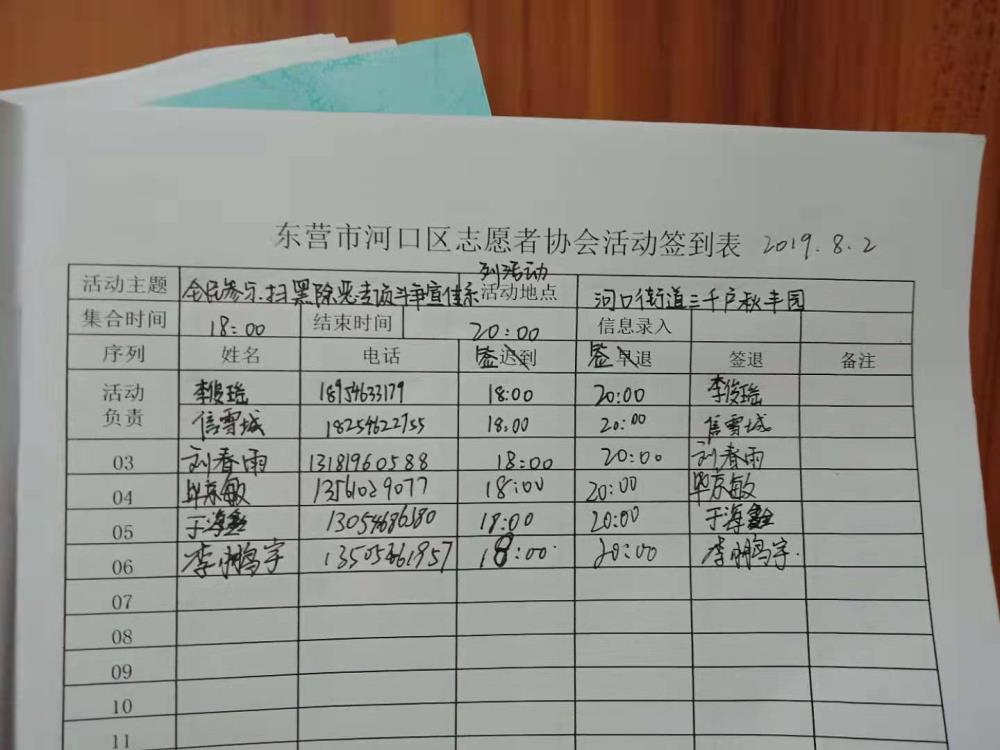 东营市河口区志愿者协会活动签到表 2019.8.2
活动主题 全民参与.扫黑除恶专项斗争宣传系列活动 活动地点 河口街道三千户秋丰园
集合时间 18:00 结束时间 20:00 信息录入
序列 姓名 电话 签到 签退 签退 备注
活动负责 李俊瑶 18954633179 18:00 20:00 李俊瑶
信雪城 18254622755 18:00 20:00 信雪城
03 刘春雨 13181960588 18:00 20:00 刘春雨
04 毕京敏 13561029077 18:00 20:00 毕京敏
05 于海鑫 13054686280 18:00 20:00 于海鑫
06 李鹏宇 13505461957 18:00 20:00 李鹏宇
07
08
09
10
11